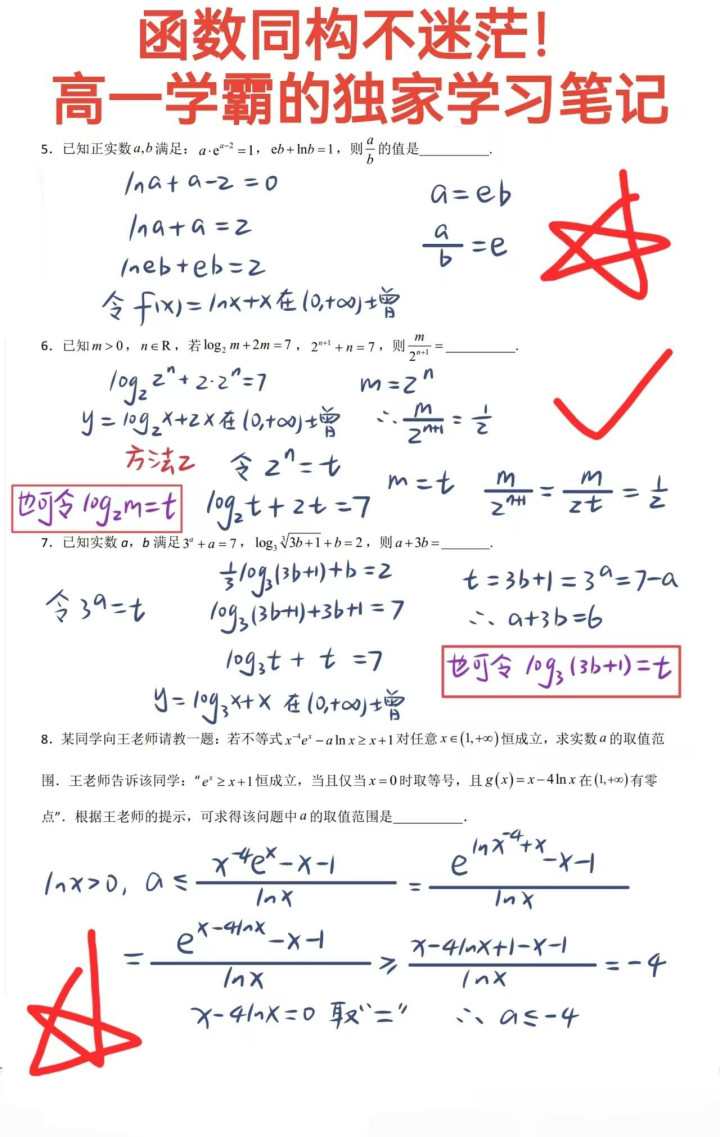 函数同构不迷茫!
高一学霸的独家学习笔记
5．已知正实数a,b满足：a·e^{a-2}=1，eb+lnb=1，则a/b的值是________．
lna+a-2=0
lna+a=2
lneb+eb=2
令f(x)=lnx+x在(0,+∞)上增
a=eb
a/b=e
6．已知m>0，n∈R，若log₂m+2m=7，2^{n+1}+n=7，则m/2^{n+1}=________．
log₂2ⁿ+2·2ⁿ=7
m=2ⁿ
y=log₂x+2x在(0,+∞)上增
∴m/2^{n+1}=1/2
方法2 令2ⁿ=t
也可令log₂m=t
log₂t+2t=7
m=t
m/2^{n+1}=m/2t=1/2
7．已知实数a，b满足3^a+a=7，log₃∛(3b+1)+b=2，则a+3b=______．
令3^a=t
1/3log₃(3b+1)+b=2
log₃(3b+1)+3b+1=7
log₃t+t=7
y=log₃x+x 在(0,+∞)上增
t=3b+1=3^a=7-a
∴a+3b=6
也可令 log₃(3b+1)=t
8．某同学向王老师请教一题：若不等式x^{-4}e^x-alnx≥x+1对任意x∈(1,+∞)恒成立，求实数a的取值范
围．王老师告诉该同学：“e^x≥x+1恒成立，当且仅当x=0时取等号，且g(x)=x-4lnx在(1,+∞)有零
点”．根据王老师的提示，可求得该问题中a的取值范围是________．
lnx>0, a≤(x^{-4}e^x-x-1)/lnx=(e^{lnx^{-4}+x}-x-1)/lnx
=(e^{x-4lnx}-x-1)/lnx≥(x-4lnx+1-x-1)/lnx=-4
x-4lnx=0 取“=” ∴a≤-4